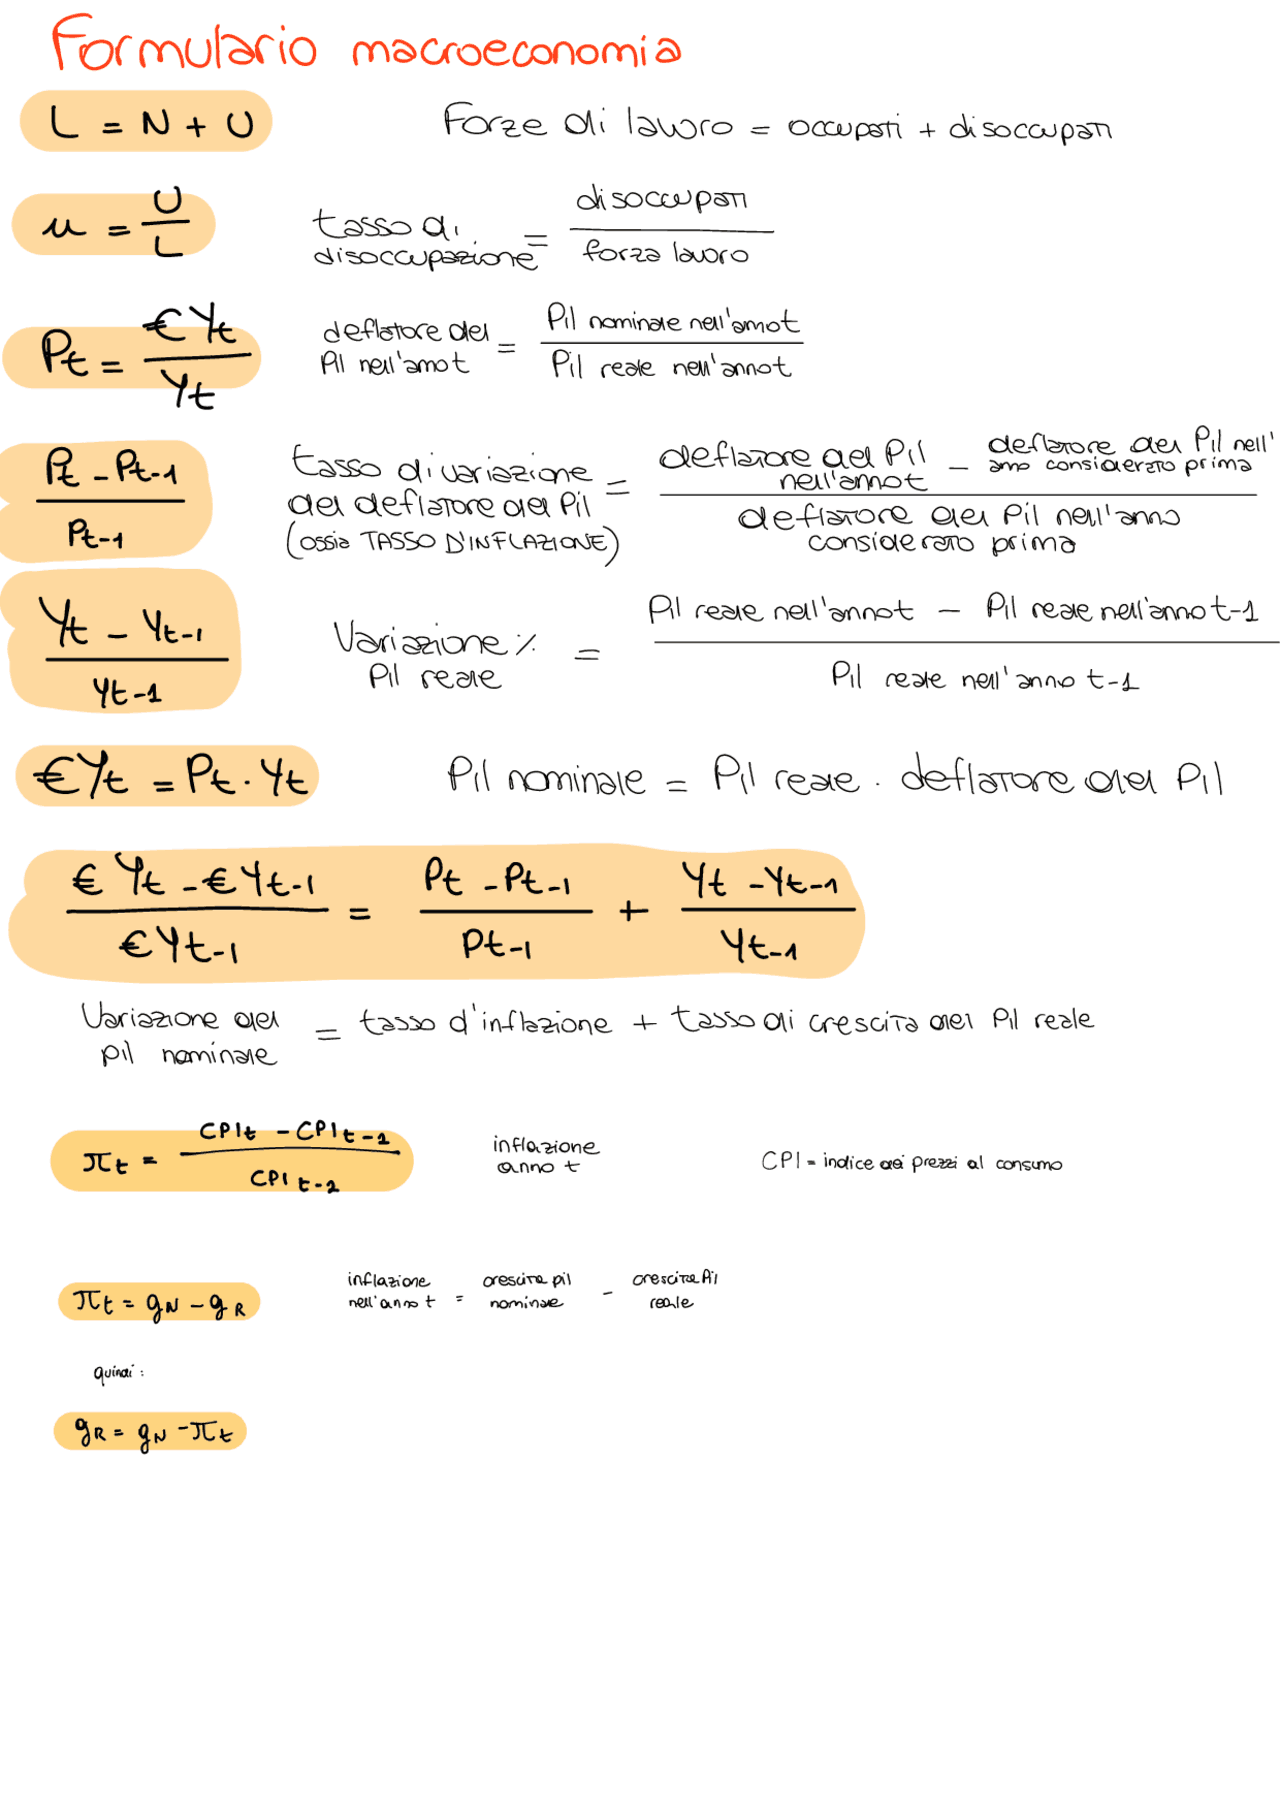 Formulario macroeconomia
L = N + U Forze di lavoro = occupati + disoccupati
u = U/L tasso di disoccupazione = disoccupati / forza lavoro
Pt = €Yt / Yt deflatore del Pil nell'anno t = Pil nominale nell'anno t / Pil reale nell'anno t
Pt - Pt-1 / Pt-1 tasso di variazione del deflatore del Pil (ossia TASSO D'INFLAZIONE) = deflatore del Pil nell'anno t - deflatore del Pil nell'anno considerato prima / deflatore del Pil nell'anno considerato prima
Yt - Yt-1 / Yt-1 Variazione % Pil reale = Pil reale nell'anno t - Pil reale nell'anno t-1 / Pil reale nell'anno t-1
€Yt = Pt · Yt Pil nominale = Pil reale · deflatore del Pil
€Yt - €Yt-1 / €Yt-1 = Pt - Pt-1 / Pt-1 + Yt - Yt-1 / Yt-1
Variazione del pil nominale = tasso d'inflazione + tasso di crescita del Pil reale
πt = CPIt - CPIt-1 / CPIt-1 inflazione anno t CPI = indice dei prezzi al consumo
πt = gN - gR inflazione nell'anno t = crescita pil nominale - crescita Pil reale
quindi:
gR = gN - πt